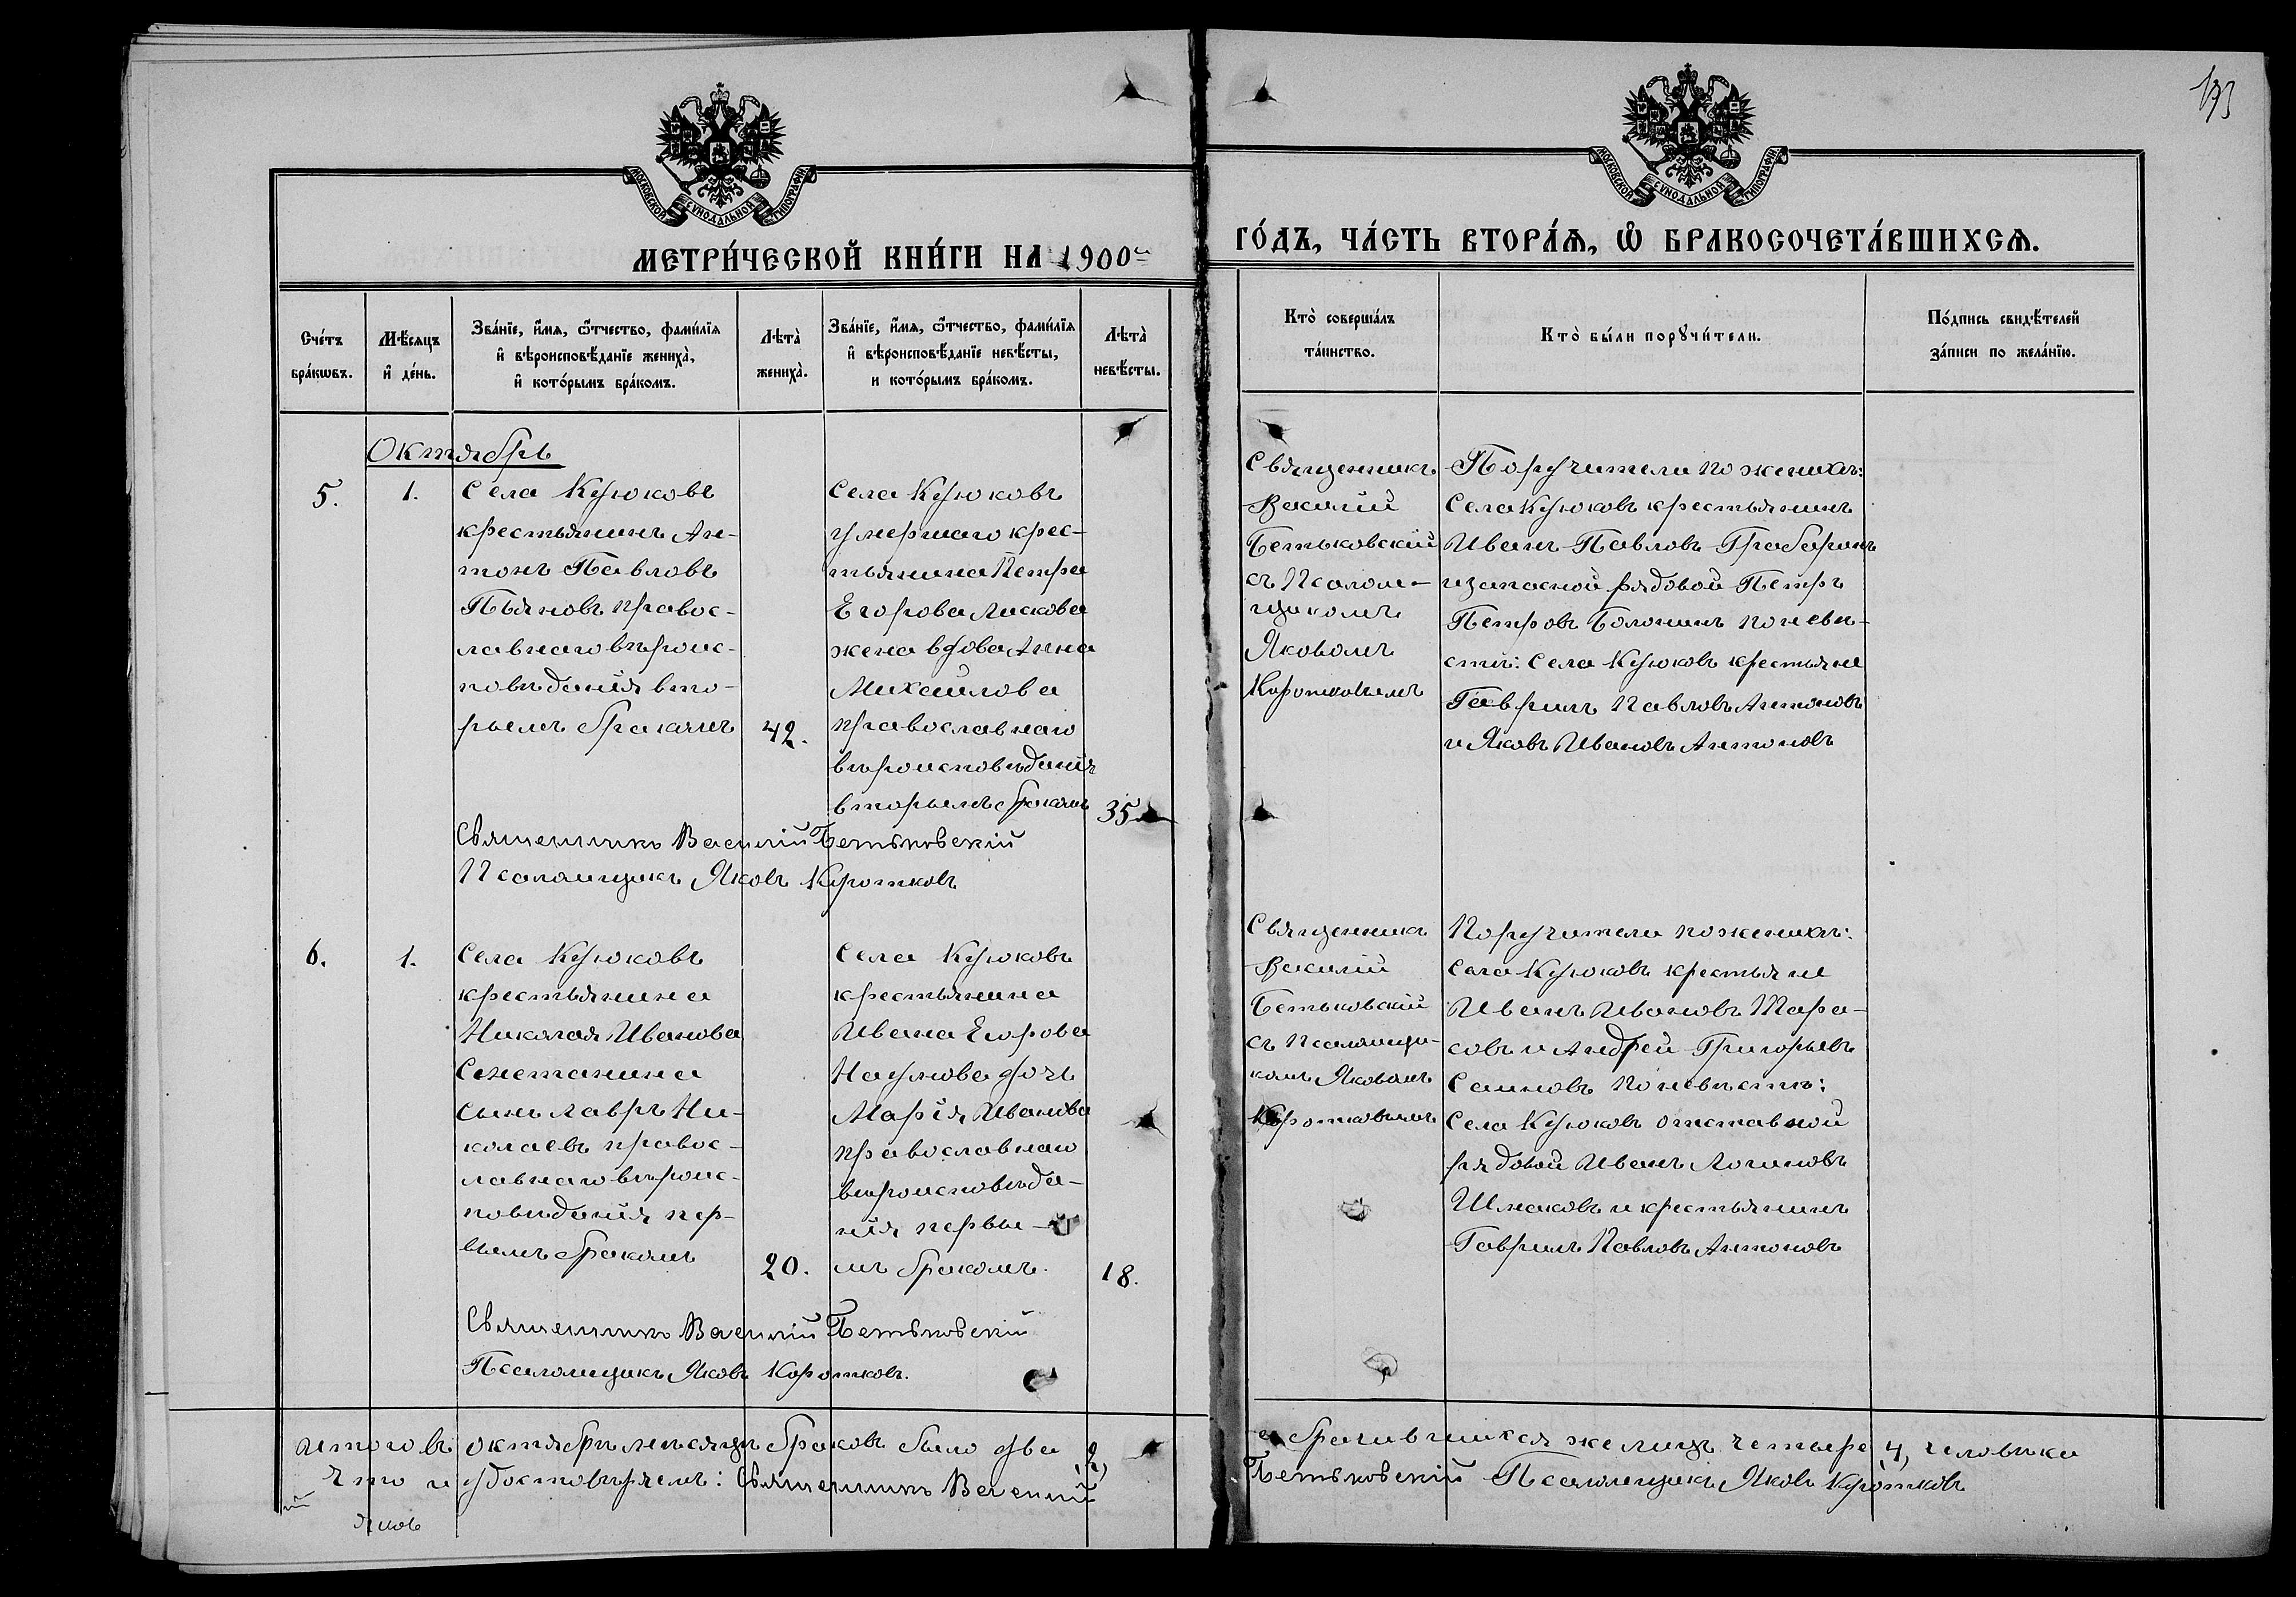 193
МОСКОВСКОЙ СѴНОДАЛЬНОЙ ТИПОГРАФІИ
МОСКОВСКОЙ СѴНОДАЛЬНОЙ ТИПОГРАФІИ
МЕТРИ́ЧЕСКОЙ КНИ́ГИ НА 1900й
ГО́ДЪ, ЧА́СТЬ ВТОРА́Ѧ, Ѽ БРАКОСОЧЕТА́ВШИХСѦ.
Сче́тъ
бра́кѡвъ.
Мѣ́сяцъ
и҆ де́нь.
Зва́нїе, и҆́мя, ѻ҆́тчество, фами́лїя
и҆ вѣроисповѣ́данїе жениха̀,
и҆ кото́рымъ бра́комъ.
Лѣта̀
жениха̀.
Зва́нїе, и҆́мя, ѻ҆́тчество, фами́лїя
и҆ вѣроисповѣ́данїе невѣ́сты,
и кото́рымъ бра́комъ.
Лѣта̀
невѣ́сты.
Кто̀ соверша́лъ
та́инство.
Кто̀ бы́ли порꙋчи́тели.
По́дпись свидѣ́телей
за́писи по жела́нїю.
Октябрь
5.
1.
Села Курюковъ
крестьянинъ Ан-
тонъ Павловъ
Пьяновъ правос-
лавнаго вѣроис-
повѣданія вто-
рымъ бракомъ
42.
Села Курюковъ
умершаго крес-
тьянина Петра
Егорова Лискова
жена вдова Анна
Михайлова
православнаго
вѣроисповѣданія
вторымъ бракомъ
35
Священникъ
Василій
Бетьковскій
съ Псалом-
щикомъ
Яковомъ
Коротковымъ
Поручители по женихѣ:
Села Курюковъ крестьянинъ
Иванъ Павловъ Грабаринъ
и запасной рядовой Петръ
Петровъ Болонинъ по невѣ-
стѣ: Села Курюковъ крестьяне
Гаврилъ Павловъ Антоновъ
и Яковъ Ивановъ Антоновъ
Священникъ Василій Бетьковскій
Псаломщикъ Яковъ Коротковъ
6.
1.
Села Курюковъ
крестьянина
Николая Иванова
Сметанина
сынъ Лавръ Ни-
колаевъ правос-
лавнаго вѣроис-
повѣданія пер-
вымъ бракомъ
20.
Села Курюковъ
крестьянина
Ивана Егорова
Наумова дочь
Марія Иванова
православнаго
вѣроисповѣда-
нія первы-
мъ бракомъ.
18.
Священникъ
Василій
Бетьковскій
съ Псаломщи-
комъ Яковомъ
Коротковымъ
Поручители по женихѣ:
Села Курюковъ крестьяне
Иванъ Ивановъ Тара-
совъ и Андрей Григорьевъ
Саиновъ по невѣстѣ:
Села Курюковъ отставной
рядовой Иванъ Логиновъ
Шмаковъ и крестьянинъ
Гаврилъ Павловъ Антоновъ
Священникъ Василій Бетьковскій
Псаломщикъ Яковъ Коротковъ.
Итого въ октябрѣ мѣсяцѣ браковъ было два 2,
а брачившихся же лицъ четыре 4, человѣка
что и удостовѣряемъ: Священникъ Василій
Бетьковскій Псаломщикъ Яковъ Коротковъ